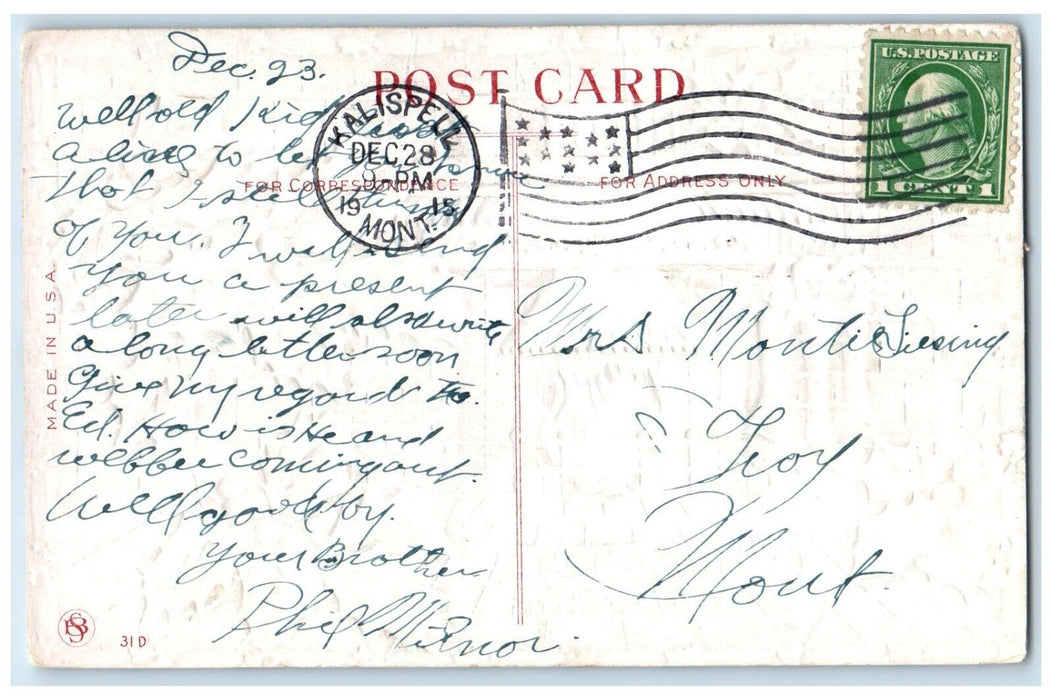 Dec. 23.
POST CARD
U.S. POSTAGE
1 CENT 1
KALISPELL
DEC 28
9-PM
19 15
MONT.
FOR CORRESPONDENCE
FOR ADDRESS ONLY
Well old Kid
a line to let you
That I still think
of you. I will send
you a present
later will also write
a long letter soon
Give my regards to.
Ed. How is He and
webber coming out.
Well good by.
Your Brother
Phil
Mrs Montie
Troy
Mont
MADE IN U.S.A.
31D